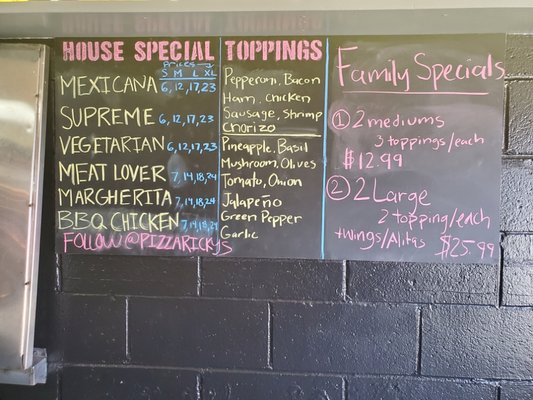 HOUSE SPECIAL
Prices
S M L XL
MEXICANA 6, 12, 17, 23
SUPREME 6, 12, 17, 23
VEGETARIAN 6, 12, 17, 23
MEAT LOVER 7, 14, 18, 24
MARGHERITA 7, 14, 18, 24
BBQ CHICKEN 7, 14, 18, 24
FOLLOW @PIZZARICKYS
TOPPINGS
Pepperoni, Bacon
Ham, Chicken
Sausage, Shrimp
Chorizo
Pineapple, Basil
Mushroom, Olives
Tomato, Onion
Jalapeño
Green Pepper
Garlic
Family Specials
① 2 mediums
3 toppings/each
$12.99
② 2 Large
2 topping/each
+wings/Alitas $25.99